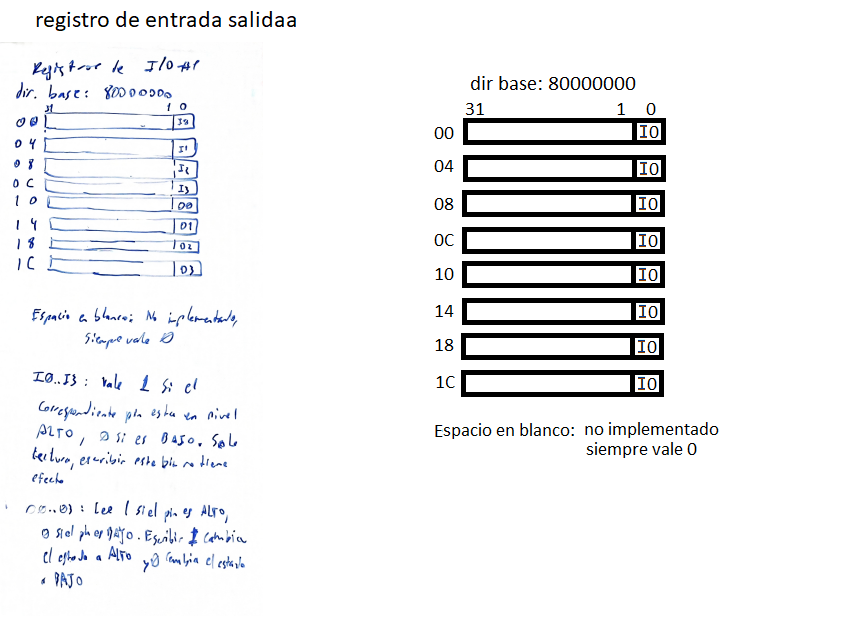 registro de entrada salidaa
Registros de I/O
dir. base: 80000000
31 1 0
00 I0
04 I1
08 I2
0C I3
10 O0
14 O1
18 O2
1C O3
Espacio en blanco: No implementado,
siempre vale 0
I0..I3: Vale 1 si el
correspondiente pin esta en nivel
ALTO, 0 si es BAJO. Solo
lectura, escribir este bit no tiene
efecto
O0..O3: Lee 1 si el pin es ALTO,
0 si el pin es BAJO. Escribir 1 cambia
el estado a ALTO y 0 cambia el estado
a BAJO
dir base: 80000000
31 1 0
00 IO
04 IO
08 IO
0C IO
10 IO
14 IO
18 IO
1C IO
Espacio en blanco: no implementado
siempre vale 0